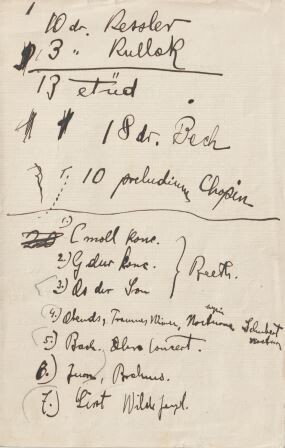 10 dr. Kessler
3 " Kullak
13 etüd
18 dr. Bach
10 preludium Chopin
1) C moll konc.
2) G dur konc. Beeth.
3) As dur Son
4) Abends, Traumes Wirren, Nocturne Schubert
5) Bach
6.) Brahms.
7.) Liszt